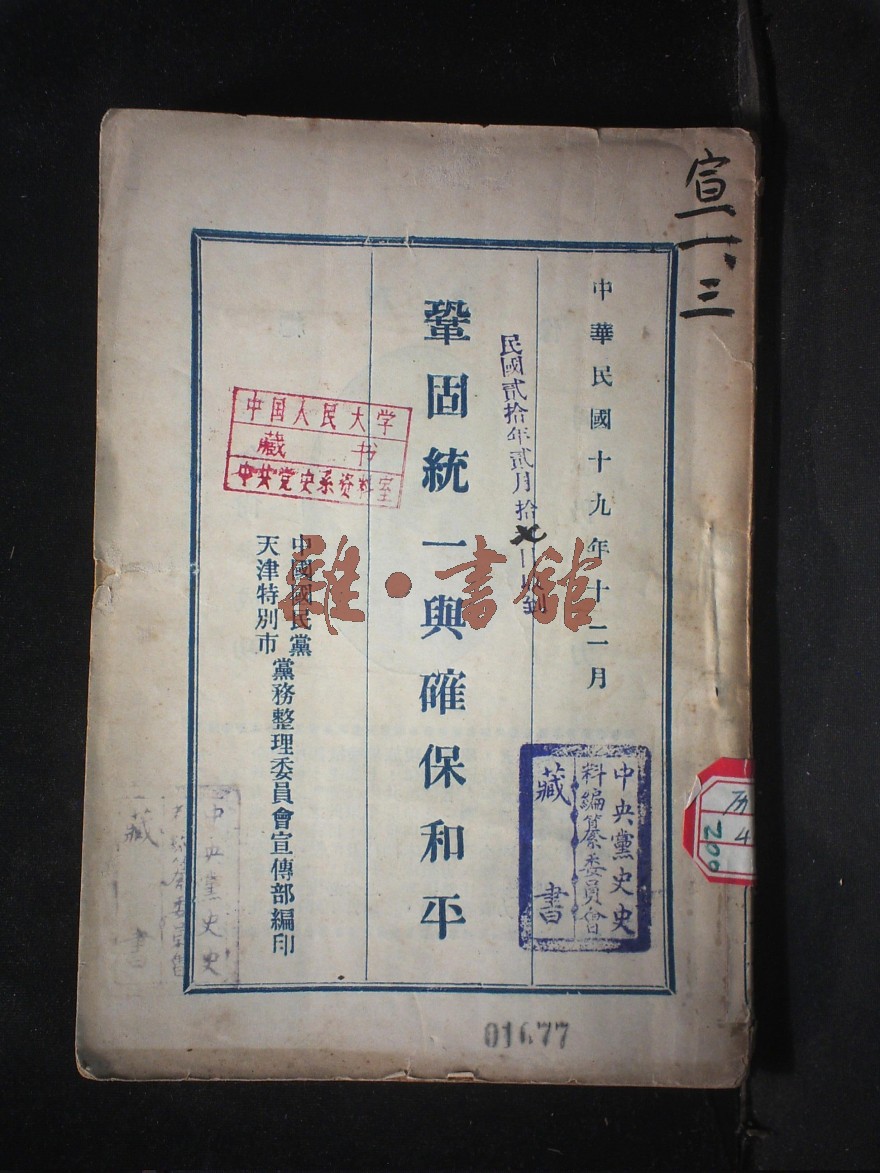 宣一、三
中華民國十九年十二月
民國貳拾年貳月拾七日收到
鞏固統一與確保和平
中國國民黨
天津特別市
黨務整理委員會宣傳部編印
中国人民大学
藏书
中央党史系资料室
中央黨史史
料編纂委員會
藏書
中央黨史史
藏書
雜·書館
200
01677